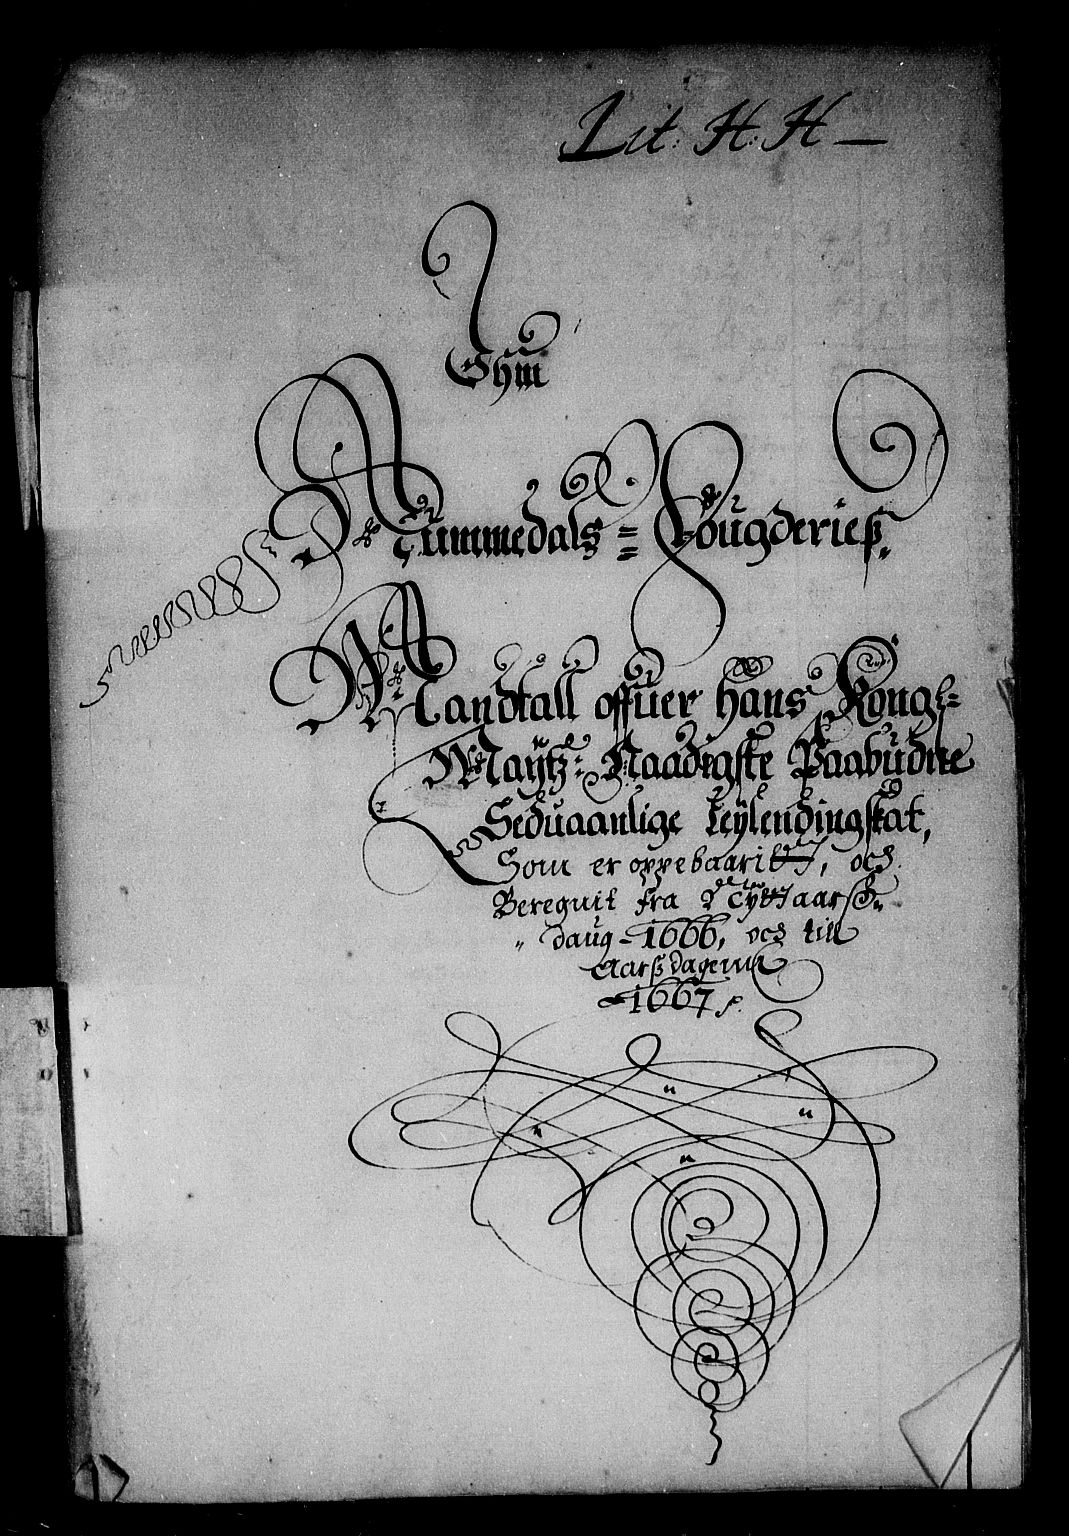 Lit: H: H
Nummedals = Fougderieß
Mandtall offuer hans Kongl:
Maÿtz: Naadigste Paabudne
Seduaanlige Leÿlendingskat,
Som er oppebaaritt, och
Beregnit fra Nÿtt aarß
daug 1666, och till
Aarßdagenn
1667